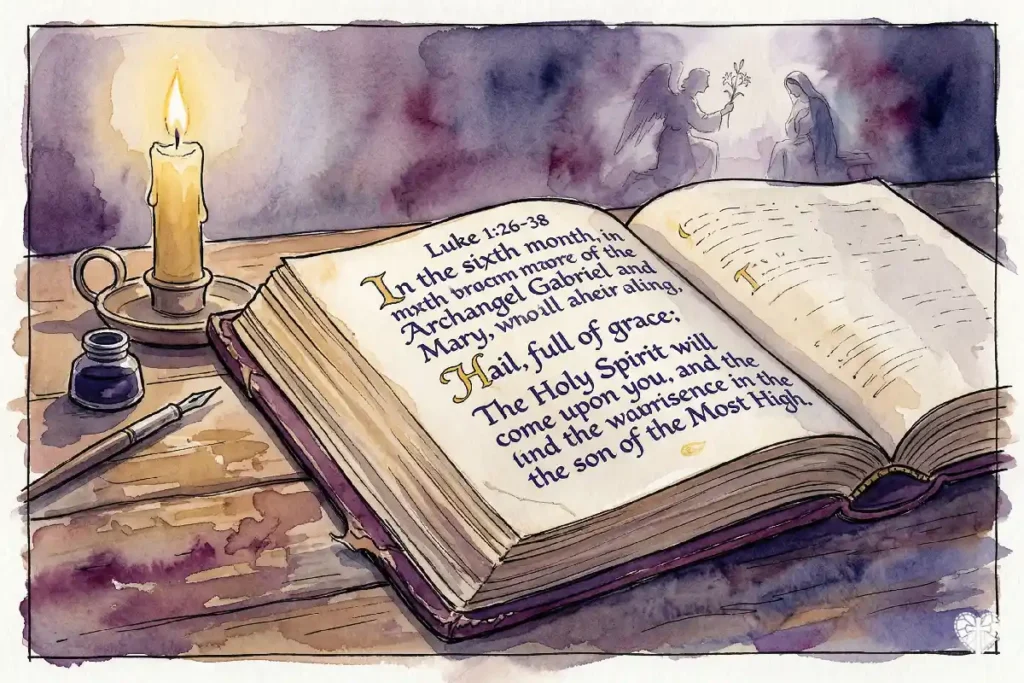 Luke 1:26-38
In the sixth month, in
mxth bracın mxore of the
Archangel Gabriel and
Mary, who ıll aheir aling,
Hail, full of grace:
The Holy Spirit will
come upon you, and the
ıınd the waurisence in the
the son of the Most High.